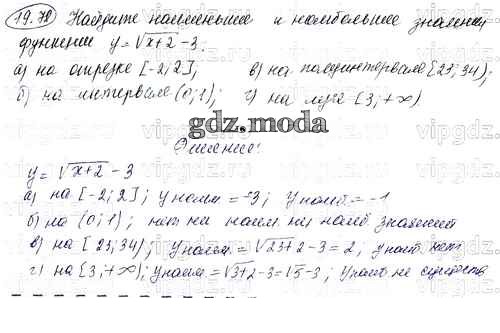 19.70 Найдите наименьшие и наибольшее значения
функции y=√x+2-3.
а) на отрезке [-2;2]; в) на полуинтервале [23;34);
б) на интервале (0;1); г) на луче [3;+∞)
gdz.moda
Решение:
y=√x+2-3
а) на [-2;2]; y наим =-3; y наиб = -1
б) на (0;1); нет ни наим ни наиб значений
в) на [23;34); y наим =√23+2-3=2, y наиб нет
г) на [3;+∞); y наим =√3+2-3=√5-3; y наиб не существ